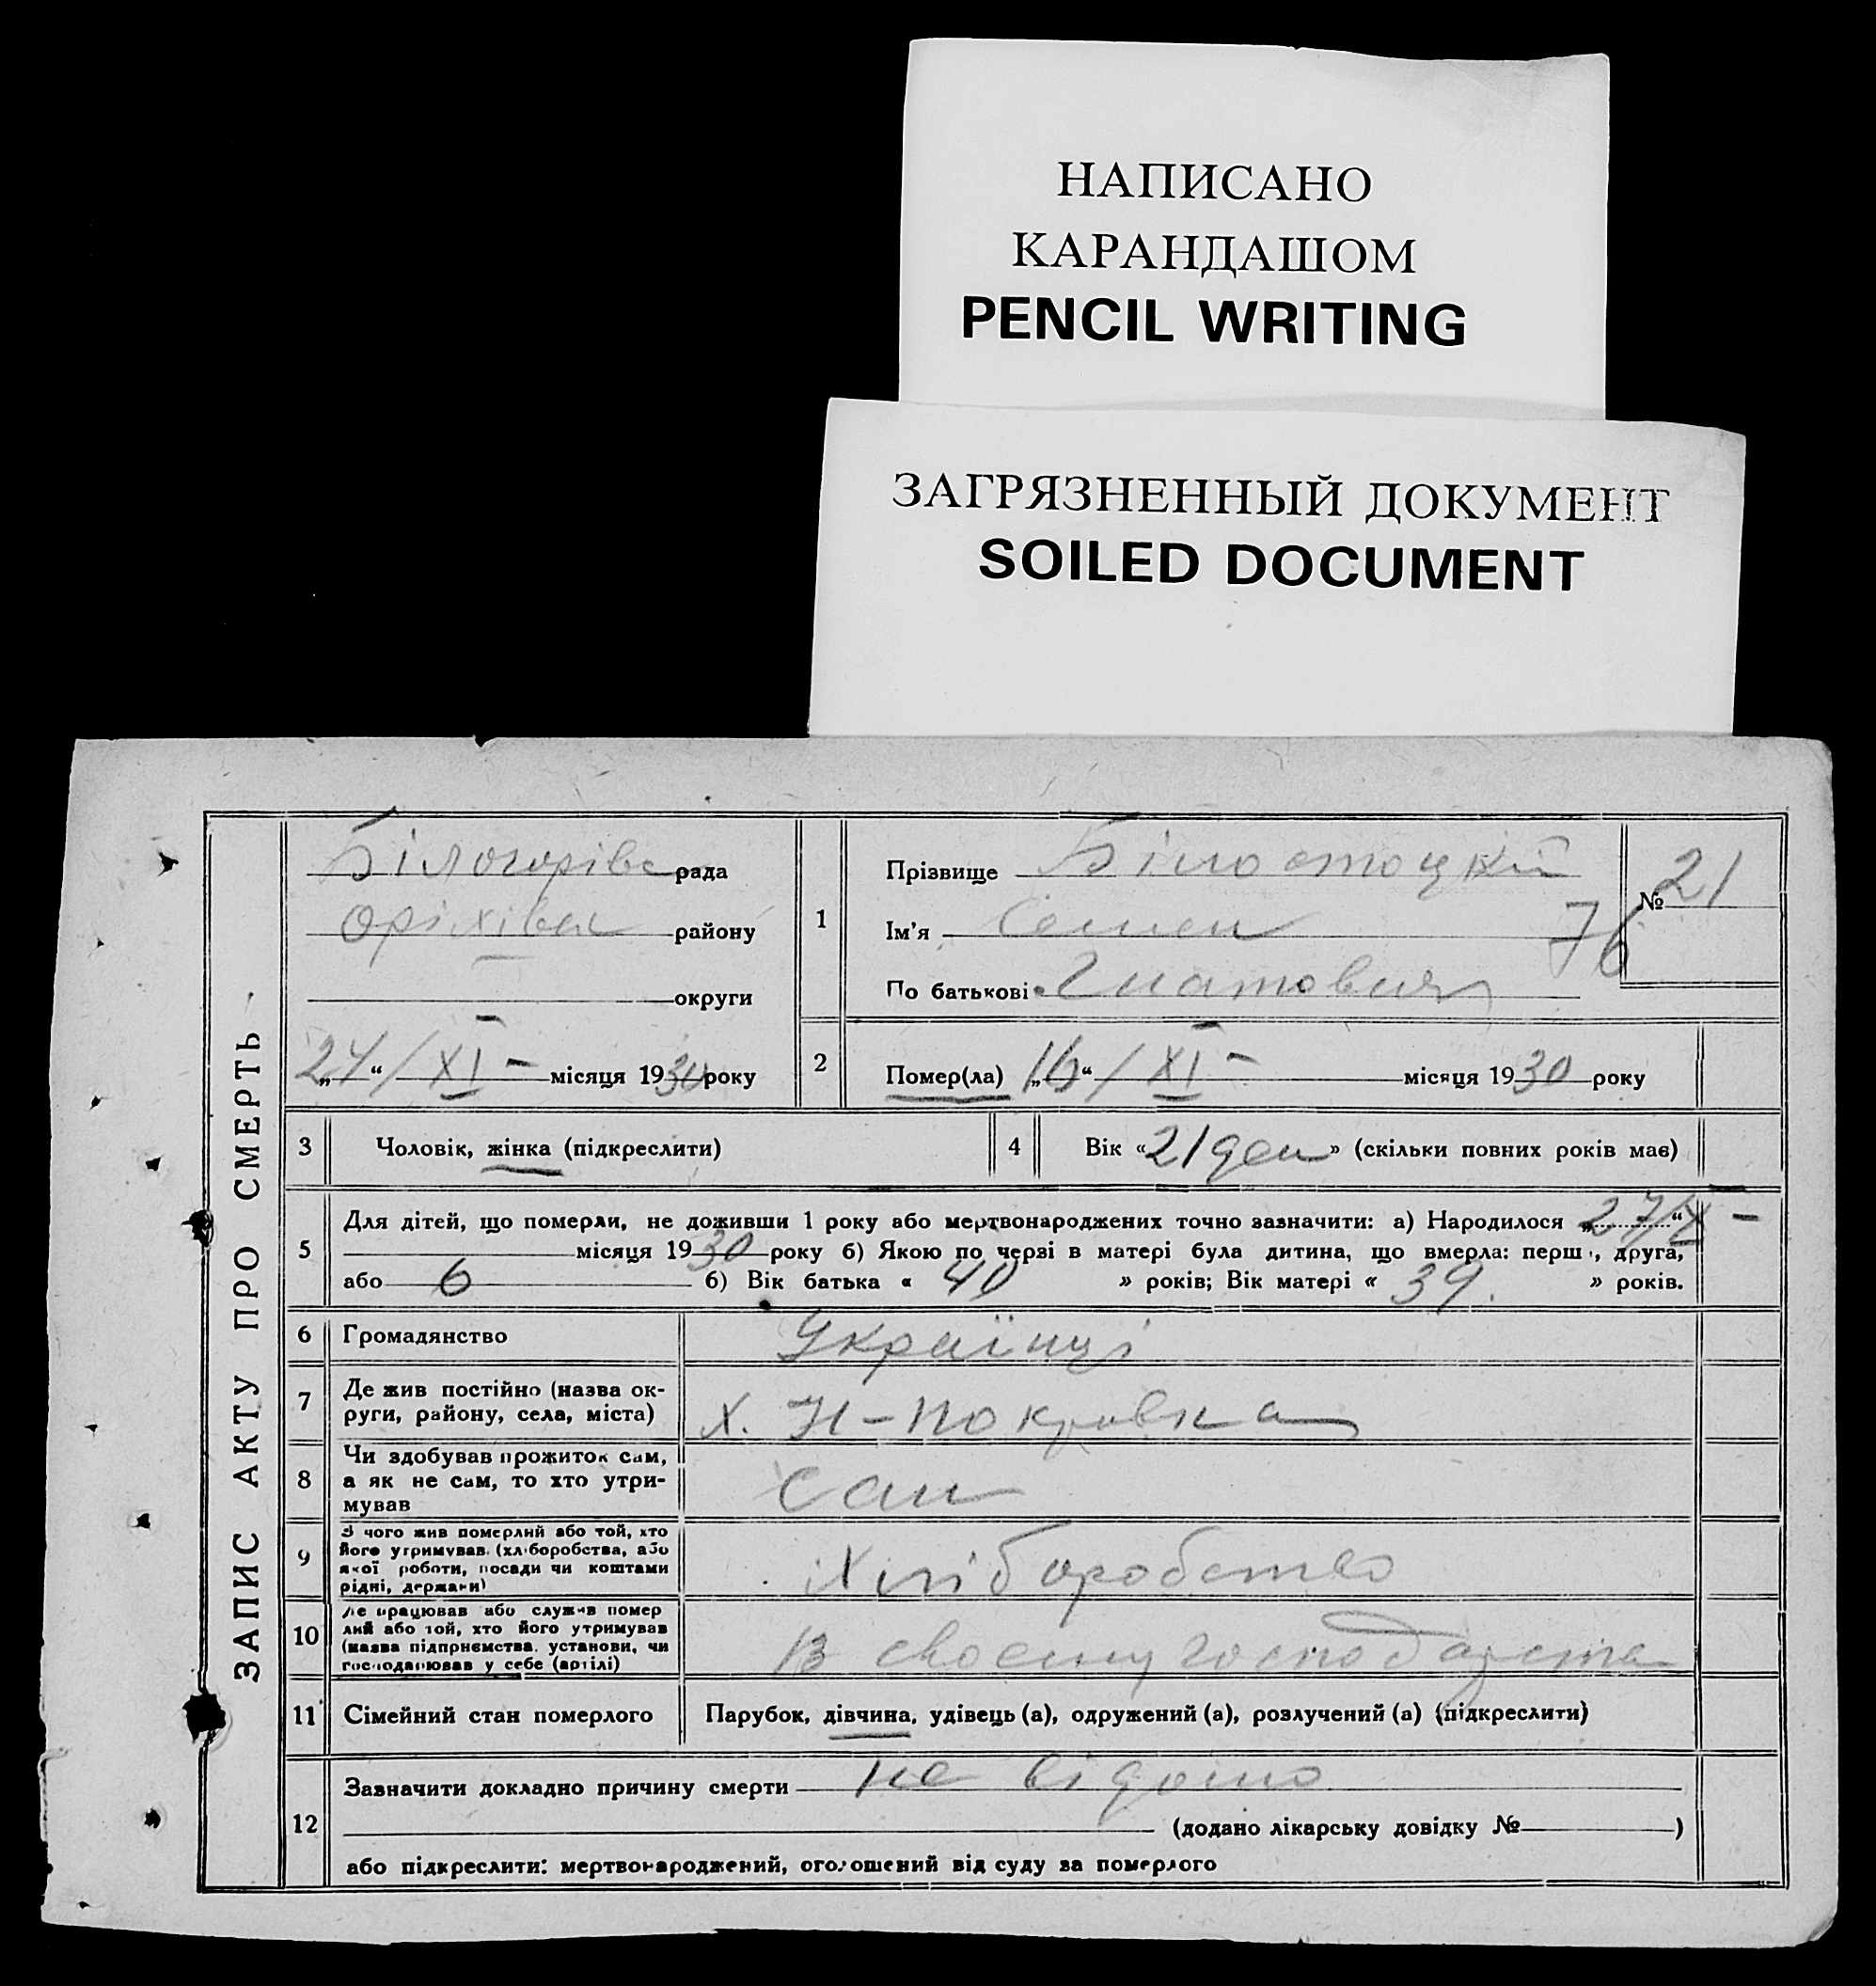 НАПИСАНО
КАРАНДАШОМ
PENCIL WRITING
ЗАГРЯЗНЕННЫЙ ДОКУМЕНТ
SOILED DOCUMENT
ЗАПИС АКТУ ПРО СМЕРТЬ
Білогорівс рада
Оріхівск району
округи
„24“/XI- місяця 1930 року
1
Прізвище Білостоцкий
Ім'я Семен
По батькові Гнатович
№ 21
76
2
Помер(ла) „16“/XI- місяця 1930 року
3 Чоловік, жінка (підкреслити)
4 Вік «21 ден» (скільки повних років має)
5 Для дітей, що померли, не доживши 1 року або мертвонароджених точно зазначити: а) Народилося „27/X“-
місяця 1930 року б) Якою по черзі в матері була дитина, що вмерла: перш , друга,
або 6 б) Вік батька « 40 » років; Вік матері « 39. » років.
6 Громадянство Українці
7 Де жив постійно (назва ок-
руги, району, села, міста) х. Н-Покровка
8 Чи здобував прожиток сам,
а як не сам, то хто утри-
мував Сам
9 З чого жив померлий або той, хто
його утримував. (хліборобства, або
якої роботи, посади чи коштами
рідні, держави) Хліборобство
10 Де працював або служив помер
лий або той, хто його утримував
(назва підприємства, установи, чи
господарював у себе (артілі) В своему господарства
11 Сімейний стан померлого Парубок, дівчина, удівець (а), одружений (а), розлучений (а) (підкреслити)
12 Зазначити докладно причину смерти не відомо
(додано лікарську довідку № )
або підкреслити: мертвонароджений, оголошений від суду за померлого